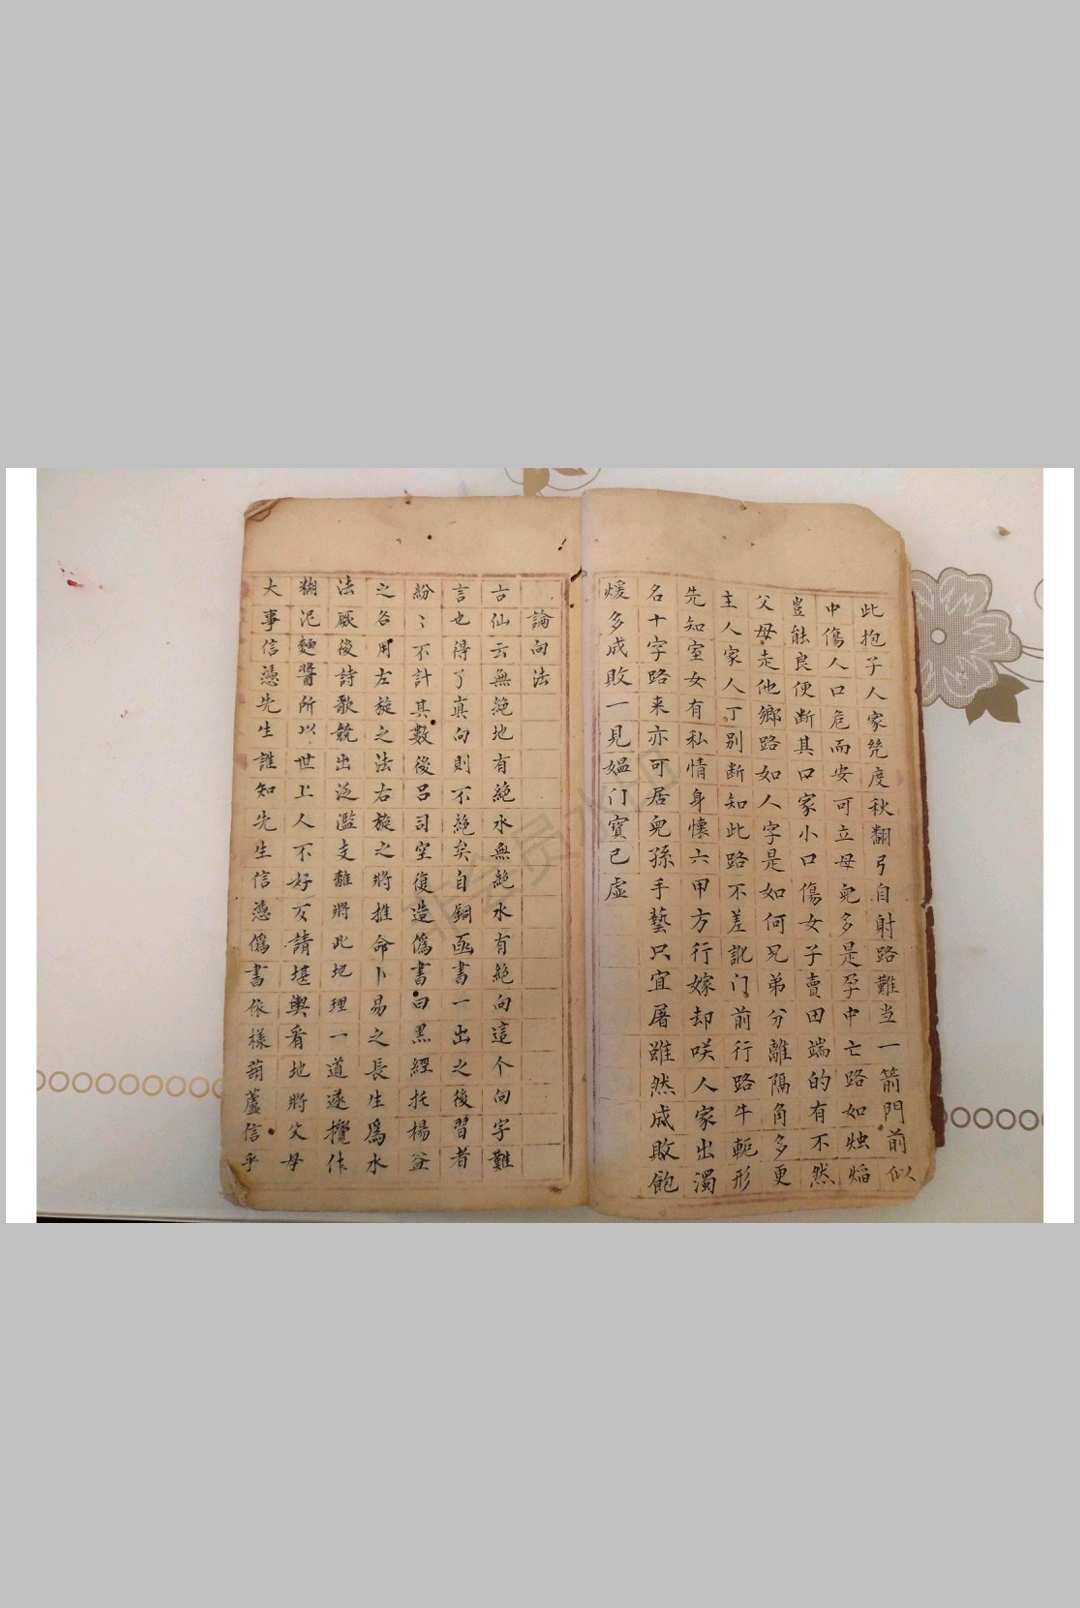 此抱子人家凳度秋翻弓自射路難当一箭門前似
中傷人口危而安可立母兒多是孕中亡路如烛焰
豈能良便断其口家小口傷女子賣田端的有不然
父母走他鄉路如人字是如何兄弟分離隔角多更
主人家人丁别断知此路不差訛门前行路牛軛形
先知室女有私情身懷六甲方行嫁却咲人家出濁
名十字路来亦可居兒孫手藝只宜屠雖然成敗飽
煖多成敗一見媪门寳已虚
論向法
古仙云無絶地有絶水無絶水有絶向這个向字難
言也得了真向則不絶矣自銅函書一出之後習者
紛〻不計其數後吕司空復造偽書曰黒經托楊益
之名用左旋之法右旋之將推命卜易之長生爲水
法厥後詩歌競出泛濫支離將此地理一道遂攪作
糊泥麵醬所以世上人不好友請堪輿看地將父母
大事信憑先生誰知先生信憑偽書依様葫蘆信乎